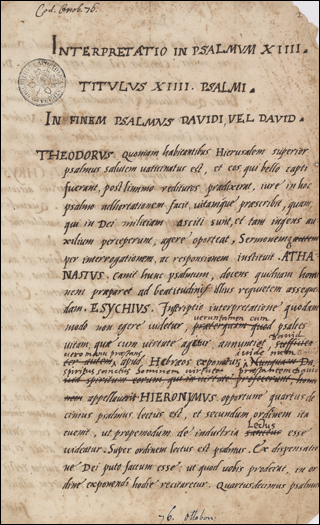 Cod. Ottob. 76.
INTERPRETATIO IN PSALMVM XIIII.
TITVLVS XIIII. PSALMI.
IN FINEM PSALMVS DAVIDI, VEL DAVID.
THEODORVS. Quoniam habitantibus Hierusalem superior
psalmus salutem vaticinatus est, et eos qui bello capti
fuerant, postliminio redituros praedixerat, iure in hoc
psalmo adhortationem facit, vitamque praescribit, quam,
qui in Dei militiam asciti sunt, et tam ingens au-
xilium perceperunt, agere oporteat, Sermonem autem
per interrogationem, ac responsionem instituit. ATHA-
NASIVS. Canit hunc psalmum, docens quidnam homi-
nem praeparet ad beatitudinis illius requietem assequen-
dam. ESYCHIVS. Inscriptio interpretatione quodam
modo non egere videtur, praeterquam quod psaltes
vitam, quae cum virtute agatur, annunciet,
apud Hebraeos exponatur,
spiritus sanctus hominem virtutes
non appellavit HIERONIMVS. opportune quartus de-
cimus psalmus lectus est, et secundum ordinem ita
evenit, ut propemodum de industria Lectus esse
videatur. Super ordinem lectus est psalmus. Ex dispensatio-
ne Dei puto factum esse, ut quod vobis prodeerat, in or-
dine exponendi hodie recitaretur. Quartusdecimus psalmus
76. ottobon.